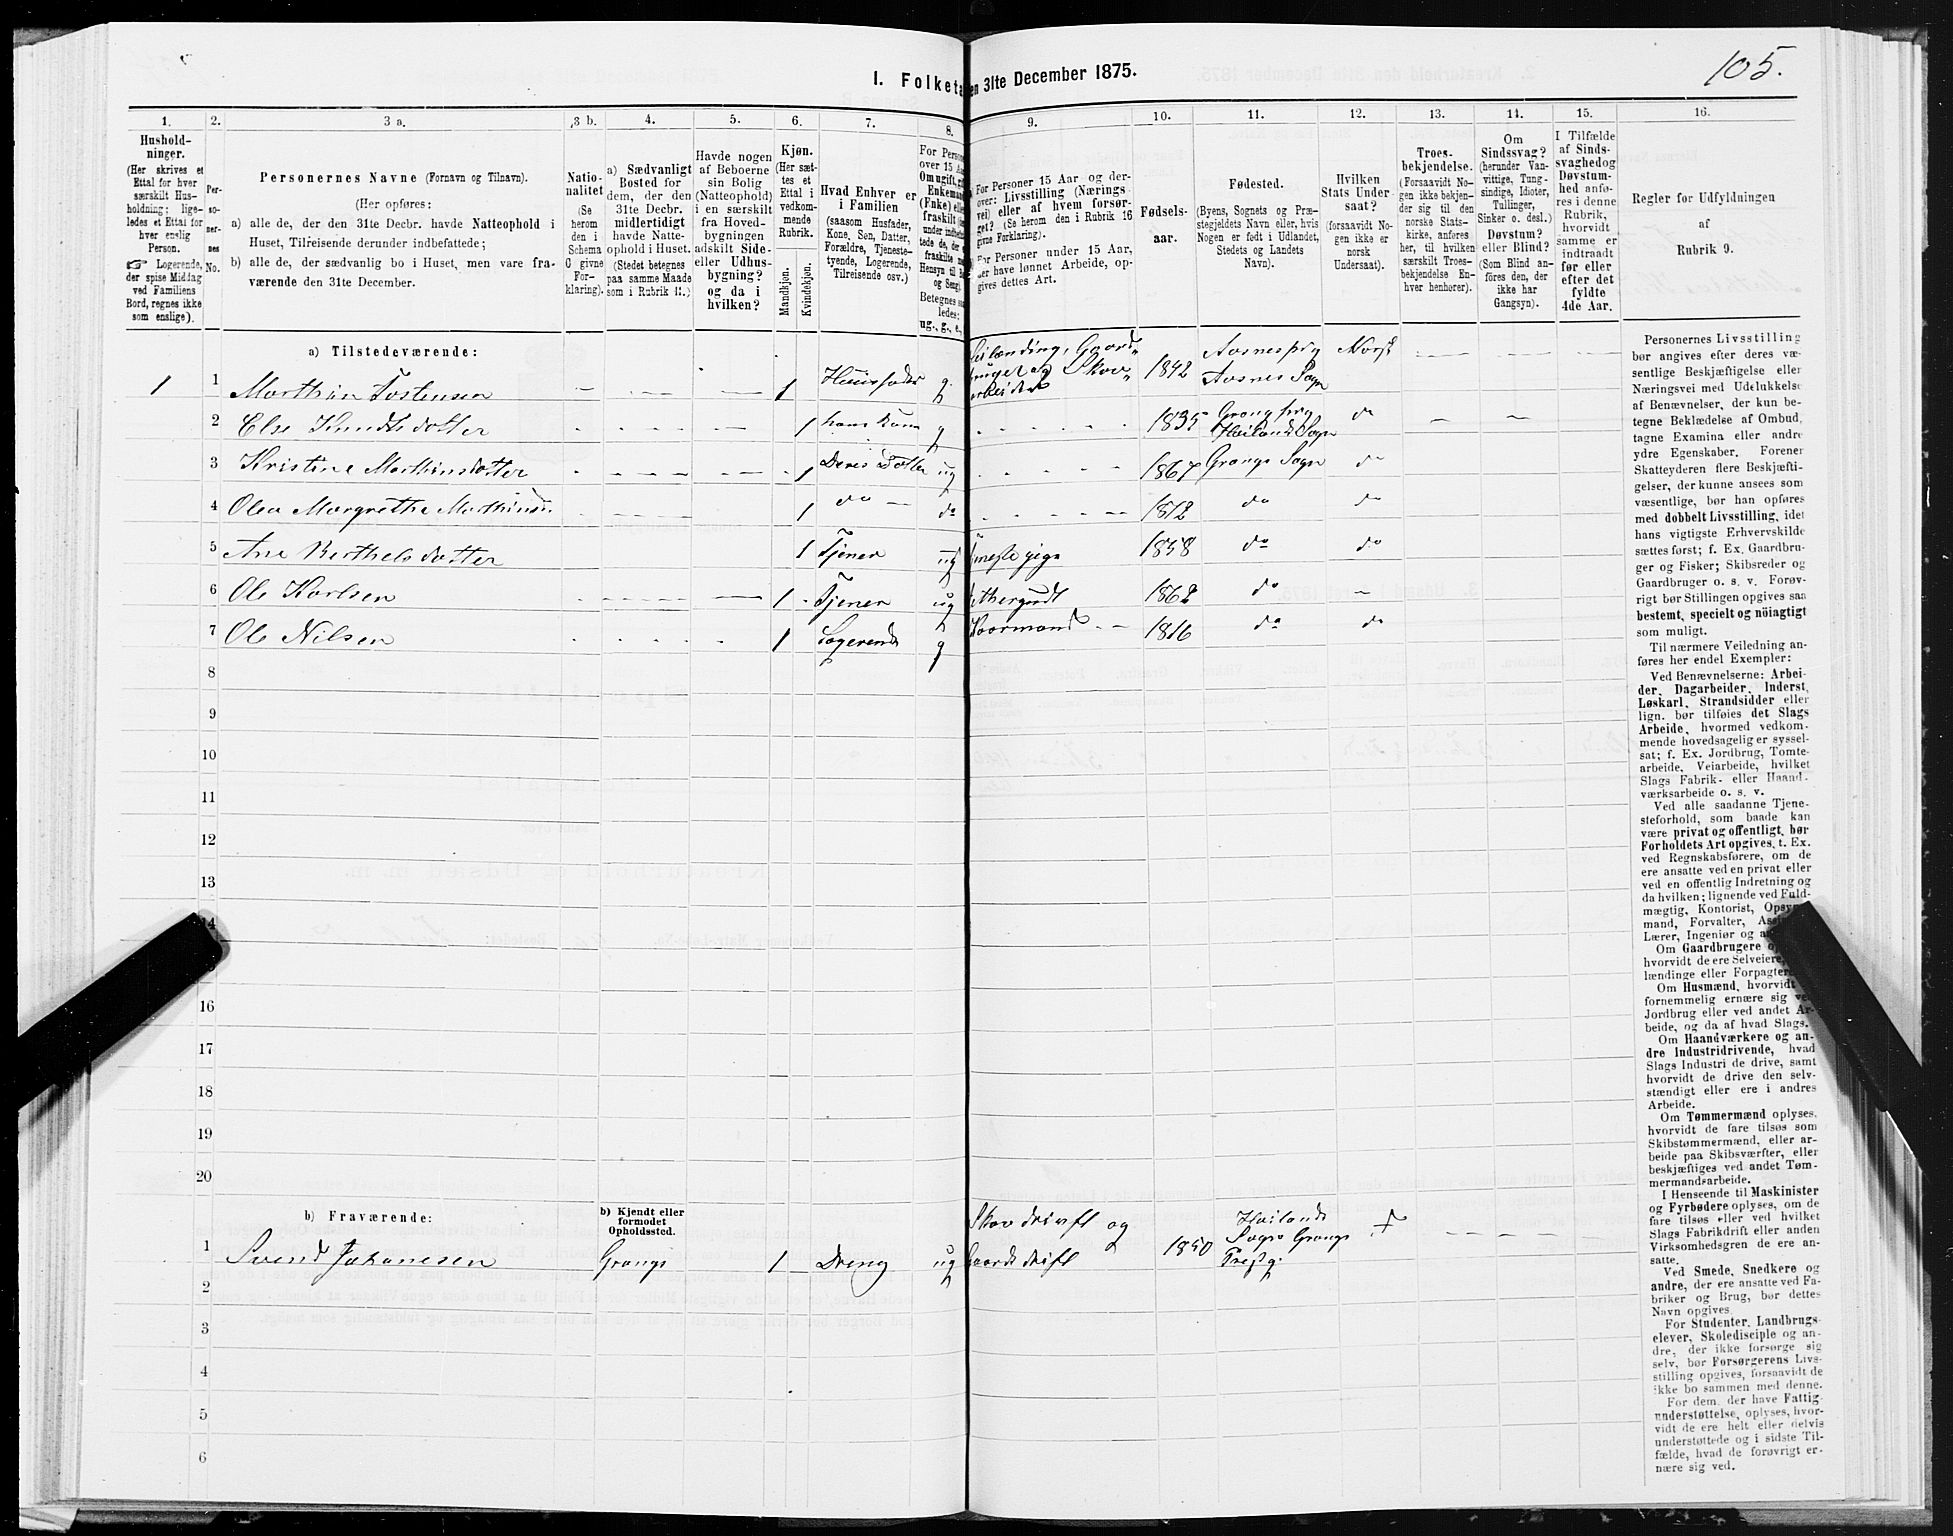 I. Folketæ
en 31te December 1875.
105.
1. 2. 3 a. 3 b. 4. 5. 6. 7. 8. 9. 10. 11. 12. 13. 14. 15. 16.
Hushold-
ninger.
(Her skrives et
Ettal for hver
særskilt Hus-
holdning; lige-
ledes et Ettal for
hver enslig
Person.
☞ Logerende,
der spise Middag
ved Familiens
Bord, regnes ikke
som enslige).
Per-
so-
ner-
nes
No.
Personernes Navne (Fornavn og Tilnavn).
(Her opføres:
a) alle de, der den 31te Decbr. havde Natteophold i
Huset, Tilreisende derunder indbefattede;
b) alle de, der sædvanlig bo i Huset, men vare fra-
værende den 31te December.
Natio-
nalitet
(Se
herom
den i
Schema
C givne
For-
klaring).
a) Sædvanligt
Bosted for
dem, der den
31te Decbr.
midlertidigt
havde Natte-
ophold i Huset.
(Stedet betegnes
paa samme Maade
som i Rubrik 11.)
Havde nogen
af Beboerne
sin Bolig
(Natteophold)
i en særskilt
fra Hoved-
bygningen
adskilt Side-
eller Udhus-
bygning?
og da i
hvilken?
Kjøn.
(Her sæt-
tes et
Ettal i
vedkom-
mende
Rubrik.
Mandkjøn.
Kvindekjøn.
Hvad Enhver er
i Familien
(saasom Husfader,
Kone, Søn, Datter,
Forældre, Tjeneste-
tyende, Logerende,
Tilreisende osv.)
For Person
over 15 Aa
Om ugift, gi
Enkeman
(Enke) elle
fraskilt
Betegnes saa
ledes:
ug., g., e.,
For Personer 15 Aar og der-
over: Livsstilling (Nærings-
vei) eller af hvem forsør-
get? (Se herom den i Rubrik 16
givne Forklaring).
For Personer under 15 Aar,
der have lønnet Arbeide, op-
gives dettes Art.
Fødsels-
aar.
Fødested.
(Byens, Sognets og Præ-
stegjeldets Navn eller, hvis
Nogen er født i Udlandet,
Stedets og Landets
Navn).
Hvilken
Stats Under-
saat?
(forsaavidt No-
gen ikke er
norsk
Undersaat).
Troes-
bekjendelse.
(Forsaavidt No-
gen ikke bekjen-
der sig til den
norske Stats-
kirke, anføres
her, til hvilken
særskilt Troes-
bekjendelse En-
hver henhører).
Om
Sindssvag?
(herunder Van-
vittige, Tung-
sindige, Idioter,
Tullinger,
Sinker o. desl.)
Døvstum?
eller Blind?
(Som Blind an-
føres den, der
ikke har
Gangsyn).
I Tilfælde
af Sinds-
svaghed og
Døvstum-
hed anfø-
res i denne
Rubrik,
hvorvidt
samme er
indtraadt
før eller
efter det
fyldte
4de Aar.
Regler for Udfyldningen
af
Rubrik 9.
a) Tilstedeværende:
1 1 Morthin Tostensen — — — 1 Huusfader g Leilænding, Gaard bruget og Skov arbeider 1842 Aasnes prg Aasnes Sogn Norsk
2 Else Knudtsdotter 1 hans Kone g 1835 Grong prg Heilands Sogn do
3 Kristine Morthinsdotter 1 Deres Dotter ug 1867 Grongs Sogn do
4 Olea Margrethe Morthinsd 1 do — do 1872 do do
5 Ane Berthelsdotter 1 Tjener ug 1858 do do
6 Ole Karlsen 1 Tjener ug 1862 do —
7 Ole Nilsen 1 Logerende g 1816 do do
8
9
10
11
12
13
14
16
17
18
19
20
b) Fraværende:
b) Kjendt eller
formodet
Opholdssted.
1 Svend Johanesen Grongs 1 Dreng ug Skovdrivft og Gaardsdrift 1850 Heilands Sogn Grongs Prestg.
2
3
4
5
6
Personernes Livsstilling
bør angives efter deres væ-
sentlige Beskjæftigelse eller
Næringsvei med Udelukkelse
af Benævnelser, der kun be-
tegne Beklædelse af Ombud,
tagne Examina eller andre
ydre Egenskaber. Forener
Skatteyderen flere Beskjæfti-
gelser, der kunne ansees som
væsentlige, bør han opføres
med dobbelt Livsstilling, idet
hans vigtigste Erhvervskilde
sættes først; f. Ex. Gaardbru-
ger og Fisker; Skibsreder og
Gaardbruger o. s. v. Forøv-
rigt bør Stillingen opgives saa
bestemt, specielt og nöiagtigt
som muligt.
Til nærmere Veiledning an-
føres her endel Exempler:
Ved Benævnelserne: Arbei-
der, Dagarbeider, Inderst,
Løskarl, Strandsidder eller
lign. bør tilføies det Slags
Arbeide, hvormed vedkom-
mende hovedsagelig er syssel-
sat; f. Ex. Jordbrug, Tomte-
arbeide, Veiarbeide, hvilket
Slags Fabrik- eller Haand-
værksarbeide o. s. v.
Ved alle saadanne Tjene-
steforhold, som baade kan
være privat og offentligt, bør
Forholdets Art opgives, t. Ex.
ved Regnskabsførere, om de
ere ansatte ved en privat eller
ved en offentlig Indretning og
da hvilken; lignende ved Fuld-
mægtig, Kontorist, Opsyns-
mand, Forvalter,
Lærer, Ingeniør og
Om Gaardbrugere
hvorvidt de ere Selveiere,
lændinge eller Forpagtere.
Om Husmænd, hvorvidt
fornemmelig ernære sig ved
Jordbrug eller ved andet Ar-
beide, og da af hvad Slags.
Om Haandværkere og an-
dre Industridrivende, hvad
Slags Industri de drive, samt
hvorvidt de drive den selv-
stændigt eller ere i andres
Arbeide.
Om Tømmermænd oplyses,
hvorvidt de fare tilsøs som
Skibstømmermænd, eller ar-
beide paa Skibsværfter, eller
beskjæftiges ved andet Tøm-
mermandsarbeide.
I Henseende til Maskinister
og Fyrbødere oplyses, om de
fare tilsøs eller ved hvilket
Slags Fabrikdrift eller anden
Virksomhedsgren de ere an-
satte.
Ved Smede, Snedkere og
andre, der ere ansatte ved Fa-
briker og Brug, bør dettes
Navn opgives.
For Studenter, Landbrugs-
elever, Skoledisciple og an-
dre, der ikke forsørge sig
selv, bør Forsørgerens Livs-
stilling opgives, forsaavidt de
ikke bo sammen med denne.
For dem, der have Fattig-
understøttelse, oplyses, hvor-
vidt de ere helt eller delvis
understøttede og i sidste Til-
fælde, hvad de forøvrigt er-
nære sig ved.